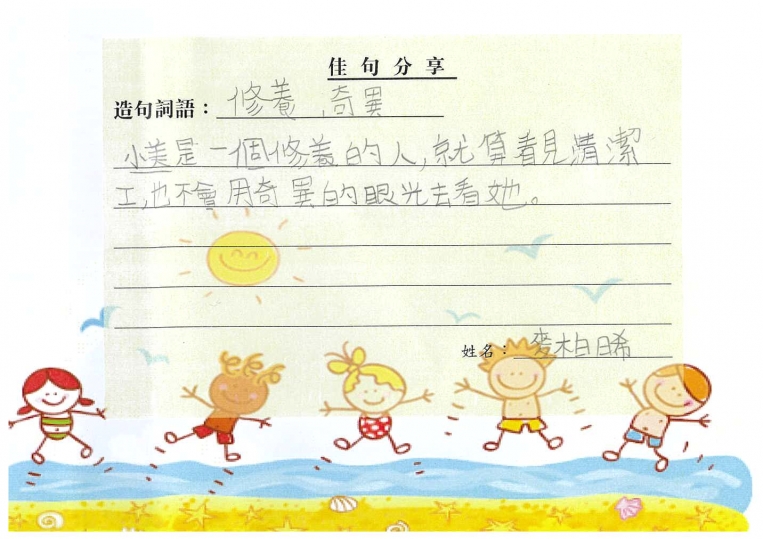 佳句分享
造句詞語：修養，奇異
小美是一個修養的人，就算看見清潔
工，也不會用奇異的眼光去看她。
姓名：麥柏晞